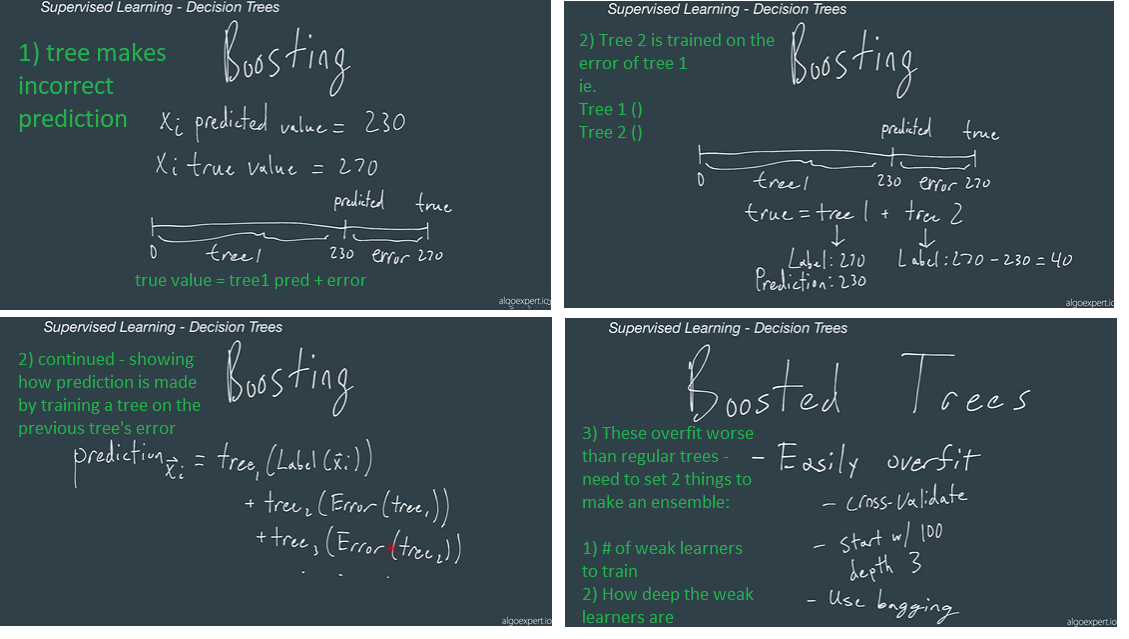 Supervised Learning - Decision Trees
Boosting
1) tree makes
incorrect
prediction
xi predicted value = 230
xi true value = 270
predicted true
0 tree1 230 error 270
true value = tree1 pred + error
algoexpert.io
Supervised Learning - Decision Trees
Boosting
2) Tree 2 is trained on the
error of tree 1
ie.
Tree 1 ()
Tree 2 ()
predicted true
0 tree1 230 error 270
true = tree 1 + tree 2
Label: 270 Label: 270 - 230 = 40
Prediction: 230
algoexpert.io
Supervised Learning - Decision Trees
Boosting
2) continued - showing
how prediction is made
by training a tree on the
previous tree's error
prediction x⃗i = tree1 (Label (x⃗i))
+ tree2 (Error (tree1))
+ tree3 (Error (tree2))
. . .
algoexpert.io
Supervised Learning - Decision Trees
Boosted Trees
3) These overfit worse
than regular trees -
need to set 2 things to
make an ensemble:
1) # of weak learners
to train
2) How deep the weak
learners are
- Easily overfit
- cross-validate
- start w/ 100
depth 3
- Use bagging
algoexpert.io